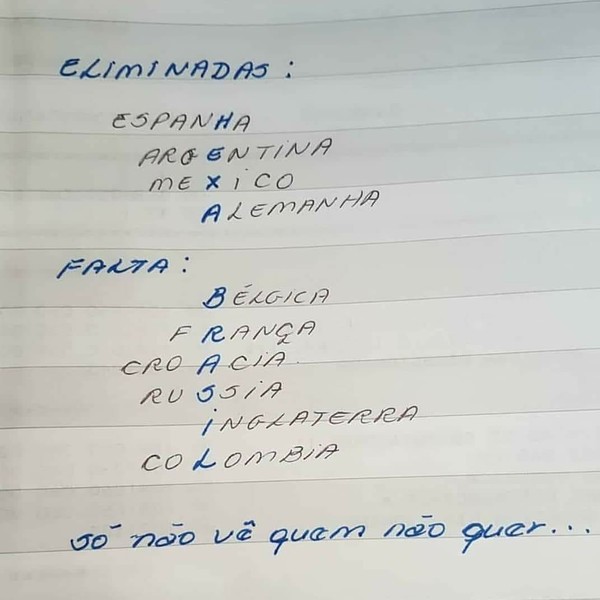 ELIMINADAS:
ESPANHA
ARGENTINA
MEXICO
ALEMANHA
FALTA:
BÉLGICA
FRANÇA
CROACIA
RUSSIA
INGLATERRA
COLOMBIA
só não vê quem não quer...